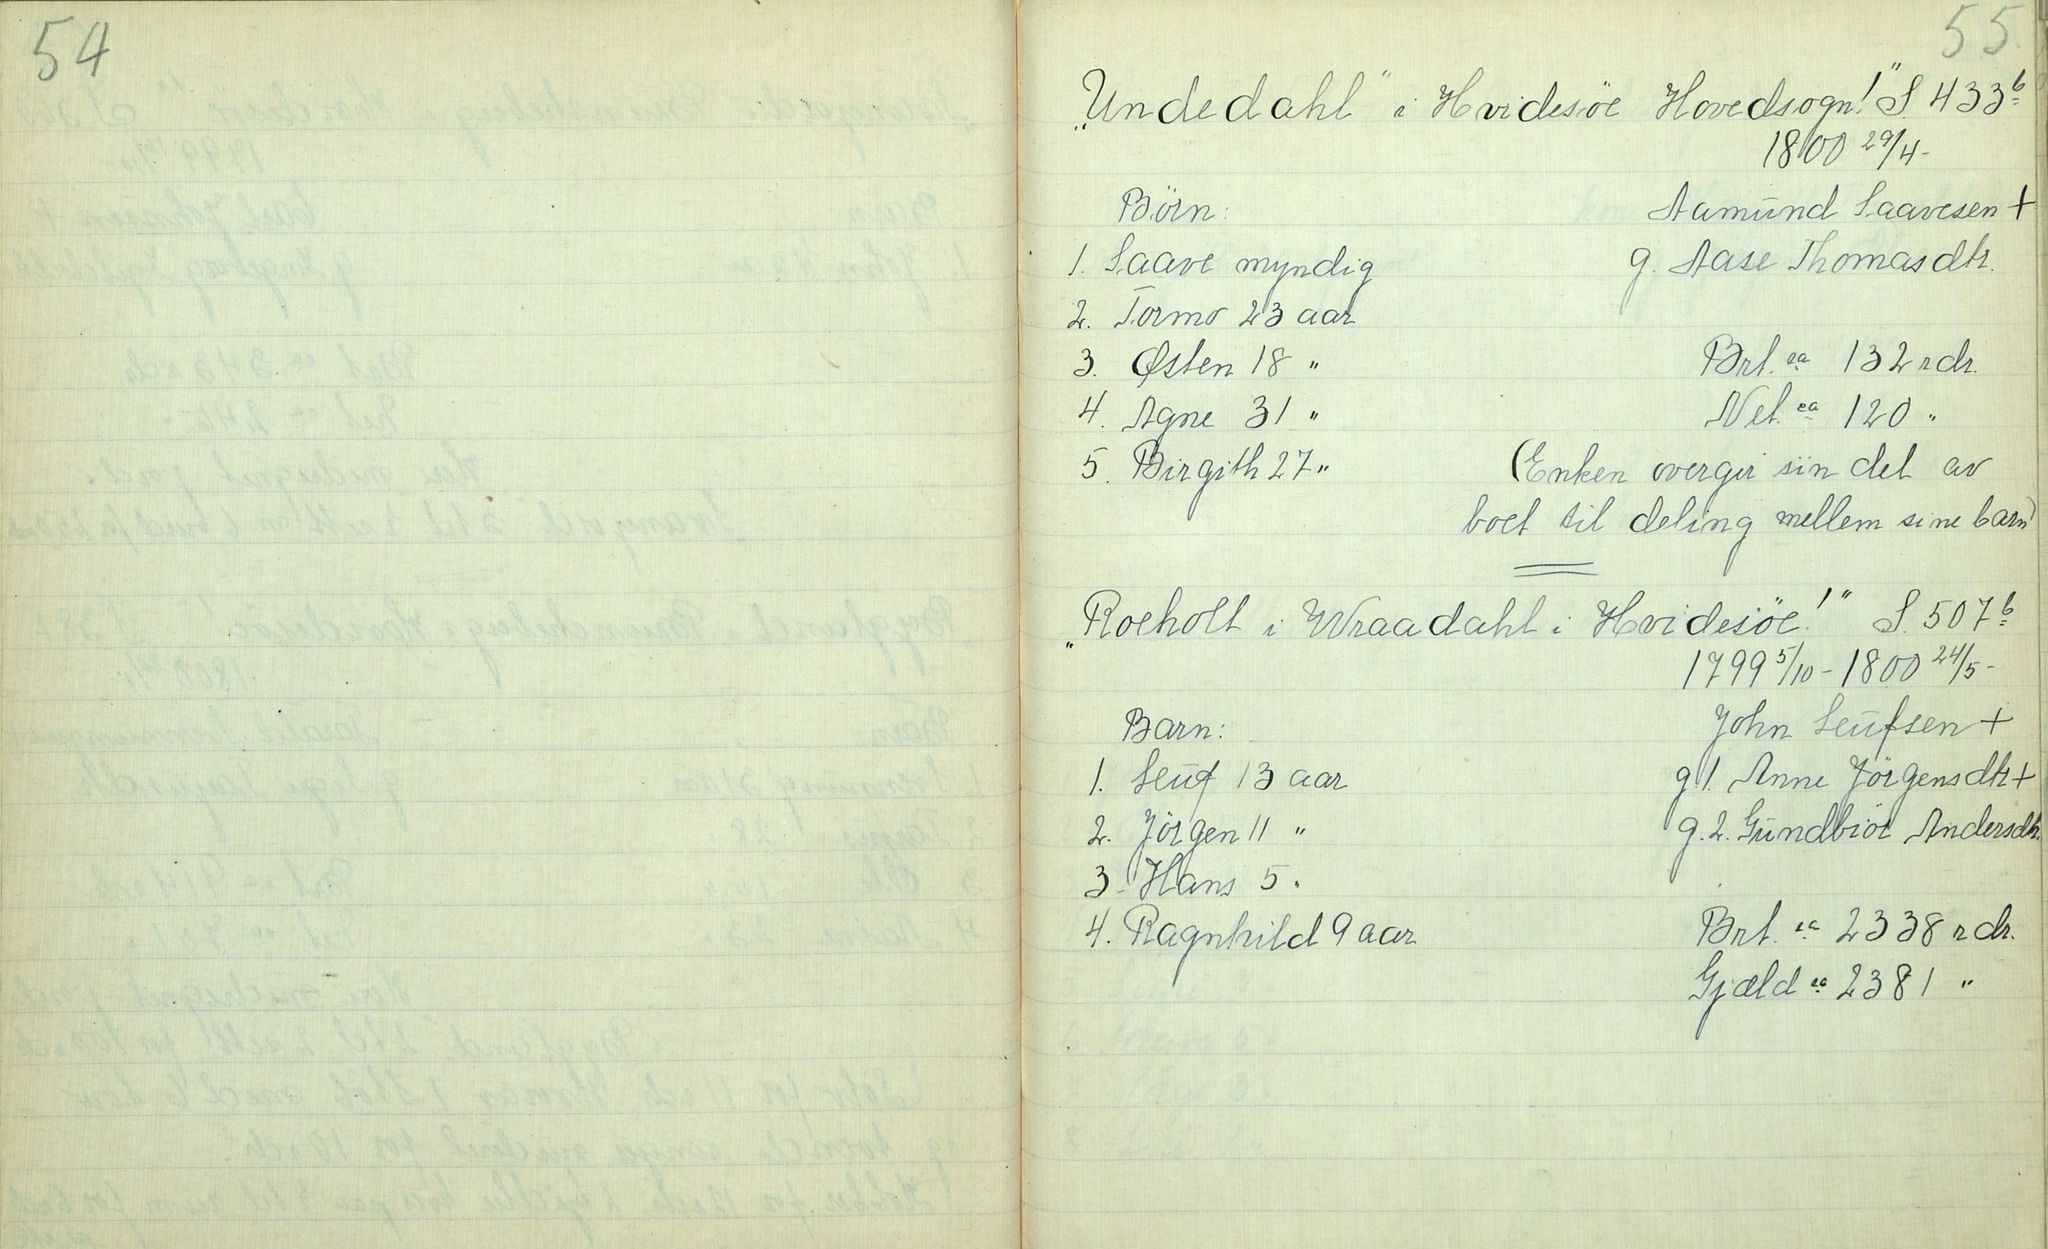 54
55.
„Undedahl" i Hvidesöe Hovedsogn!" S. 433 b
1800 29/4-
Börn:
Aamund Saavesen +
1. Saave myndig
g. Aase Thomasdtr.
2. Tormo 23 aar
3. Østen 18 "
Brt. ca 132 rdr.
4. Agne 31 "
Net. ca 120 "
5. Birgith 27 "
(Enken overgir sin del av
boet til deling mellem sine barn)
„Roeholt i Wraadahl i Hvidesöe!" S. 507 b
1799 5/10 - 1800 24/5-
Barn:
John Leufsen +
1. Leuf 13 aar
g 1. Anne Jörgensdtr +
2. Jörgen 11 "
g. 2. Gundbiör Andersdtr.
3. Hans 5 "
4. Ragnhild 9 aar
Brt. ca 2338 rdr.
Gjæld ca 2381 "